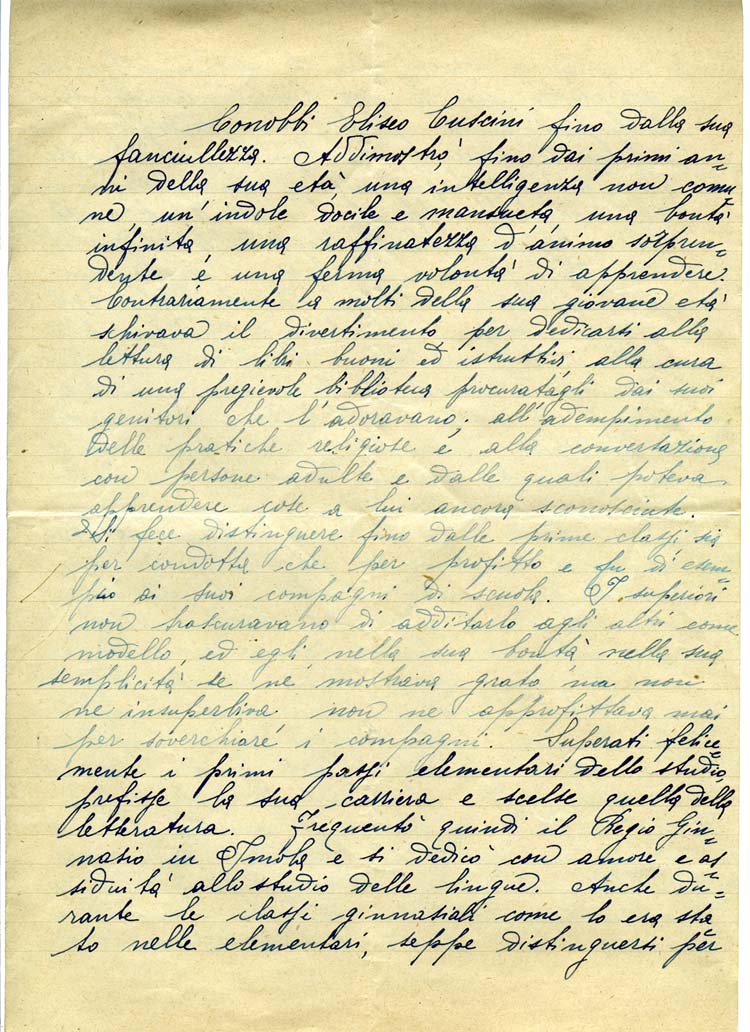 Conobbi Eliseo Cuscini fino dalla sua
fanciullezza. Addimostrò fino dai primi an=
ni della sua età una intelligenza non comu=
ne, un'indole docile e mansueta, una bontà
infinita una raffinatezza d'animo sorpren=
dente e una ferma volontà di apprendere.
Contrariamente a molti della sua giovane età
schivava il divertimento per dedicarsi alla
lettura di libri buoni ed istruttivi alla cura
di una pregievole biblioteca procuratagli dai suoi
genitori che l'adoravano, all'adempimento
delle pratiche religiose e alla conversazione
con persone adulte e dalle quali poteva
apprendere cose a lui ancora sconosciute.
Si fece distinguere fino dalle prime classi sia
per condotta che per profitto e fu di esem=
pio ai suoi compagni di scuola. I superiori
non trascuravano di additarlo agli altri come
modello, ed egli, nella sua bontà nella sua
semplicità se ne mostrava grato ma non
ne insuperbiva non ne approfittava mai
per soverchiare i compagni. Superati felice=
mente i primi passi elementari dello studio,
prefisse la sua carriera e scelse quella della
letteratura. Frequentò quindi il Regio Gin=
nasio in Imola e si dedicò con amore e as=
siduità allo studio delle lingue. Anche du=
rante le classi ginnasiali come lo era sta=
to nelle elementari, seppe distinguersi per